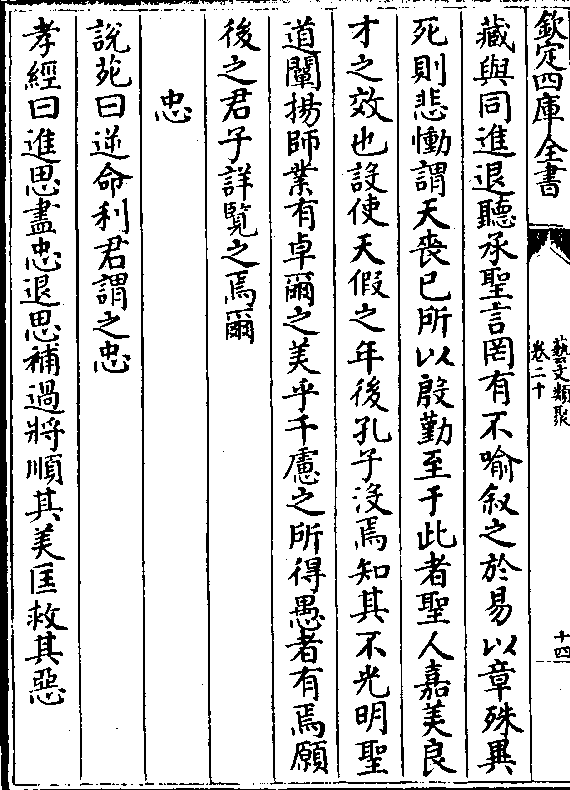 欽定四庫全書
藝文類聚
卷二十
十四
藏與同進退聽承聖言罔有不喻叙之於易以章殊異
死則悲慟謂天喪已所以殷勤至于此者聖人嘉美良
才之效也設使天假之年後孔子沒焉知其不光明聖
道闡揚師業有卓爾之美乎千慮之所得愚者有焉願
後之君子詳覽之焉爾
忠
說苑曰逆命利君謂之忠
孝經曰進思盡忠退思補過將順其美匡救其惡